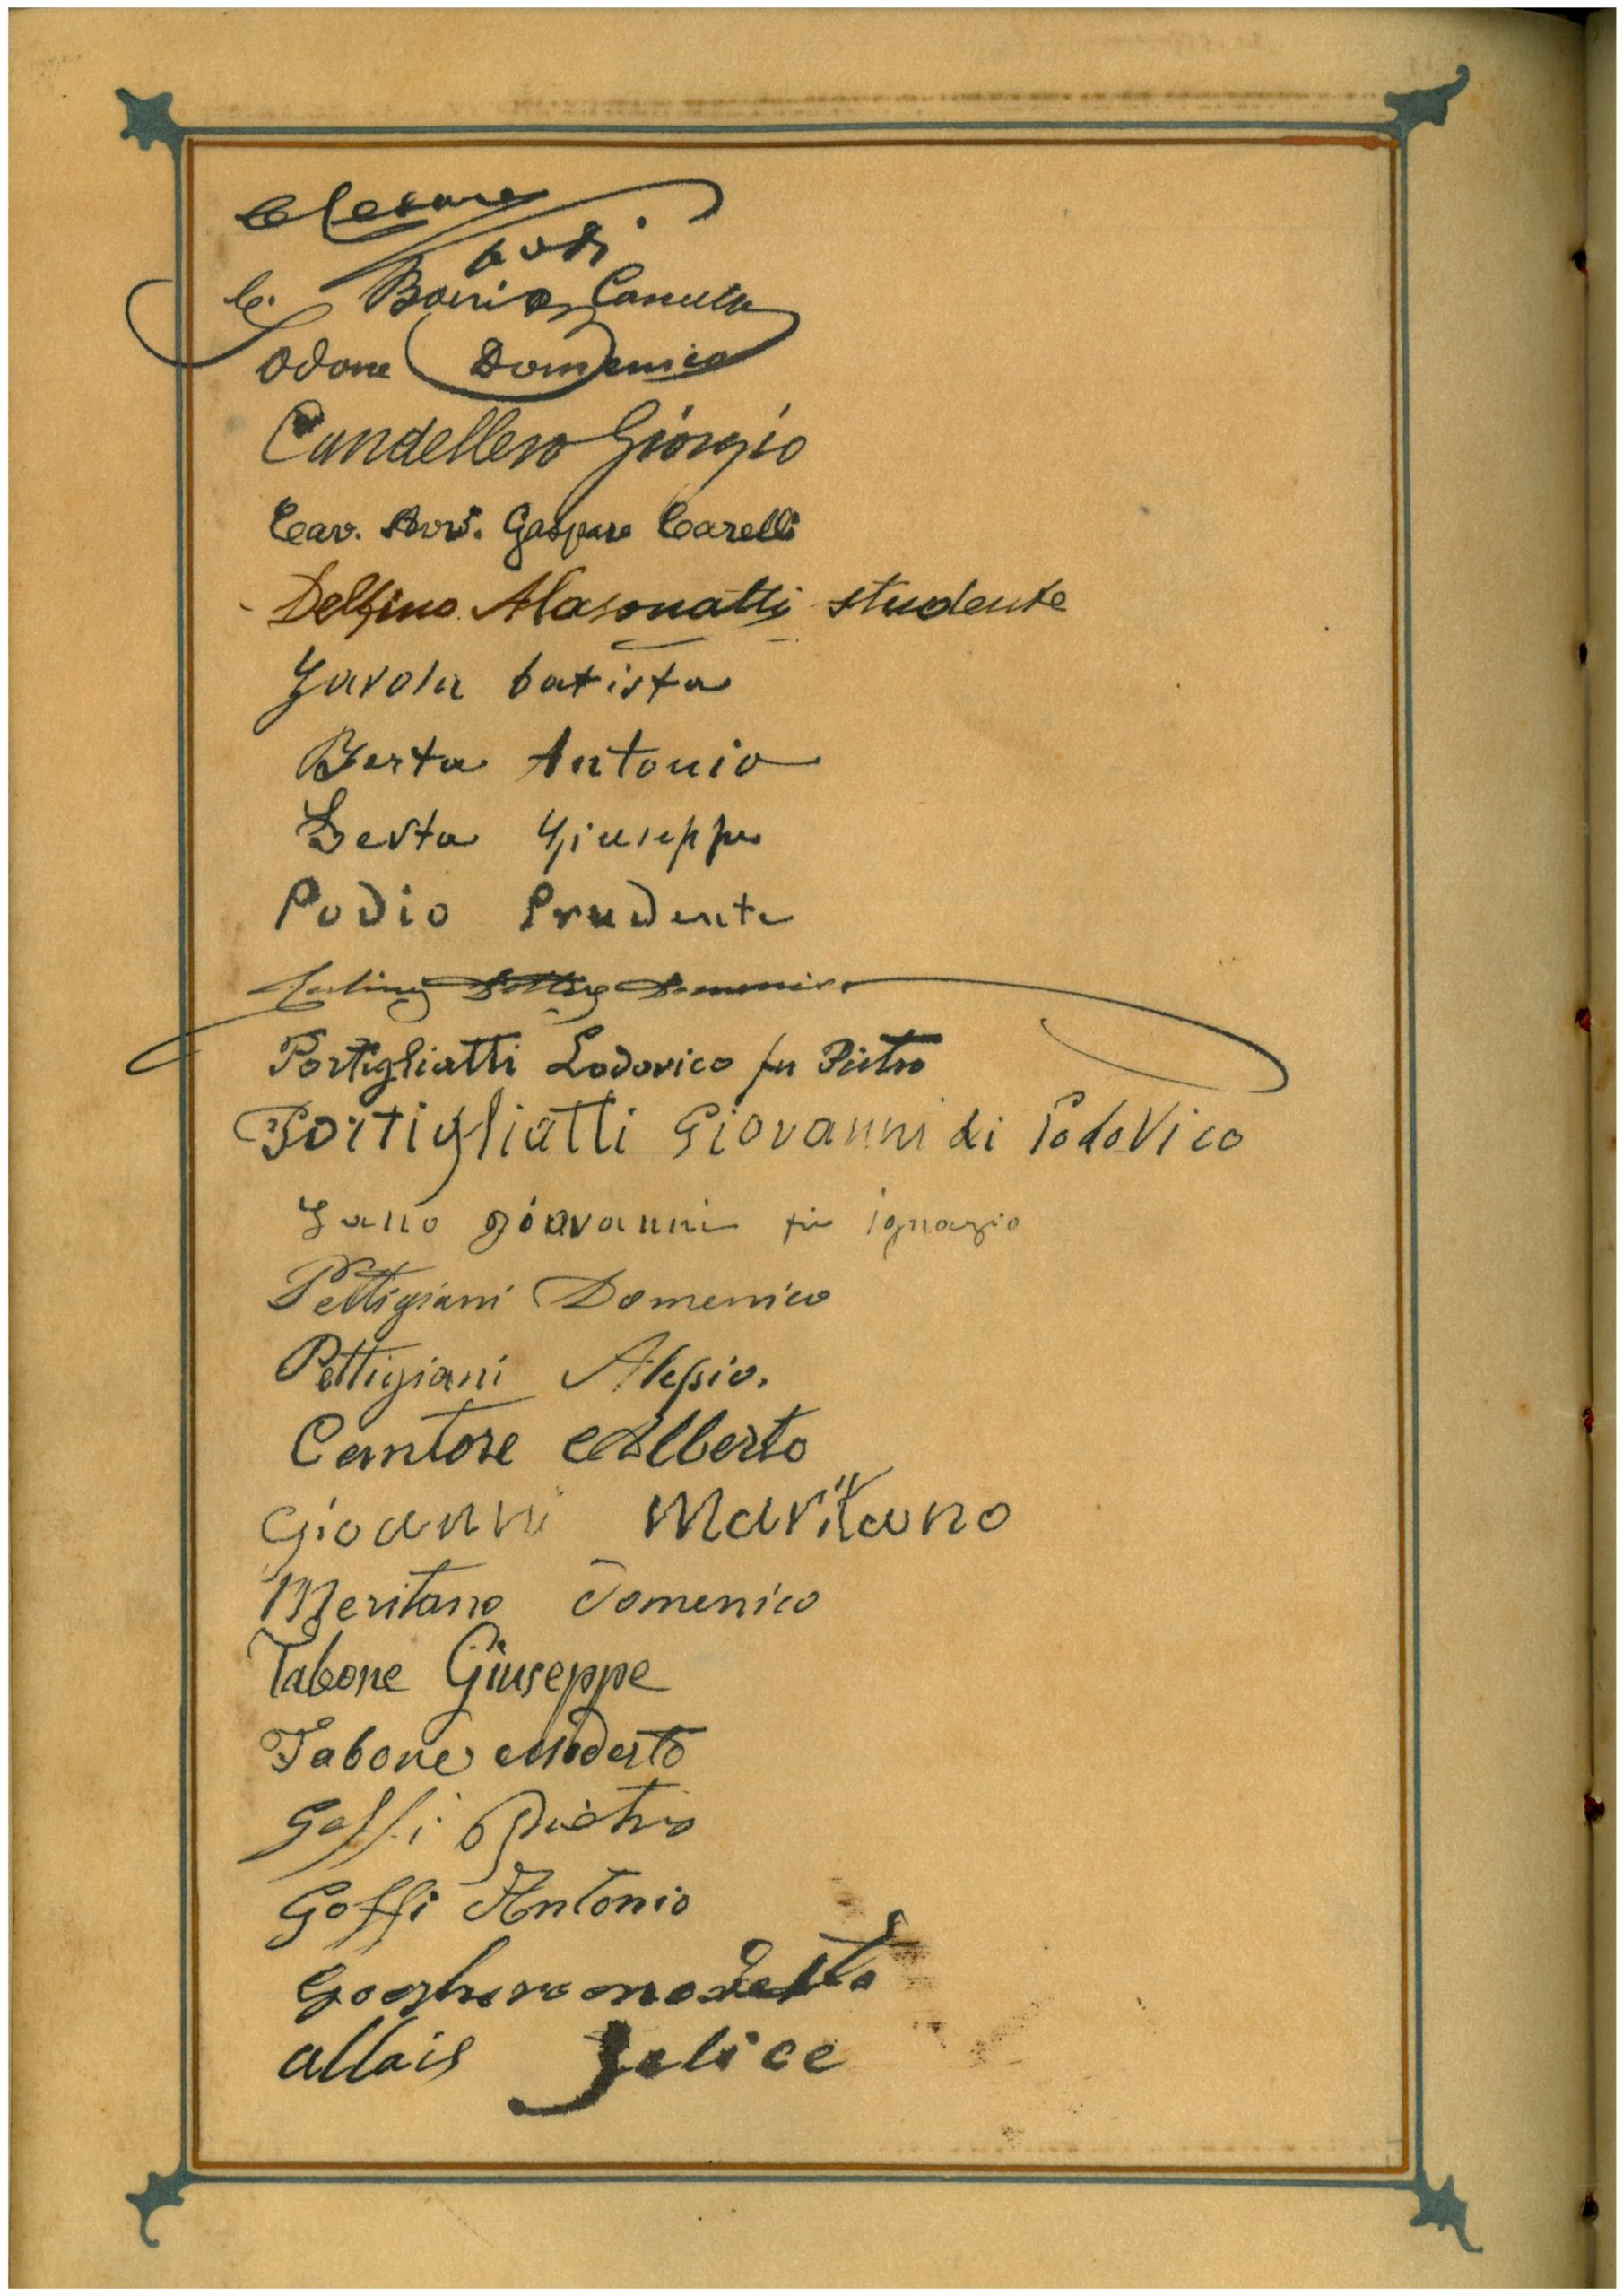 Cesare
C. Borio Camillo
Odone Domenico
Candellero Giorgio
Cav. Avv. Gaspare Carelli
Delfino Alasonatti studente
Favola batista
Berta Antonio
Berta Giuseppe
Podio Prudente
Domenico
Portigliatti Lodovico fu Pietro
Portigliatti Giovanni di LodoVico
giovanni fu ignazio
Pettigiani Domenico
Pettigiani Alessio.
Cantore Alberto
Gioanni Maritano
Meritano Domenico
Tabone Giuseppe
Tabone Modesto
Goffi Pietro
Goffi Antonio
modesto
allais Felice